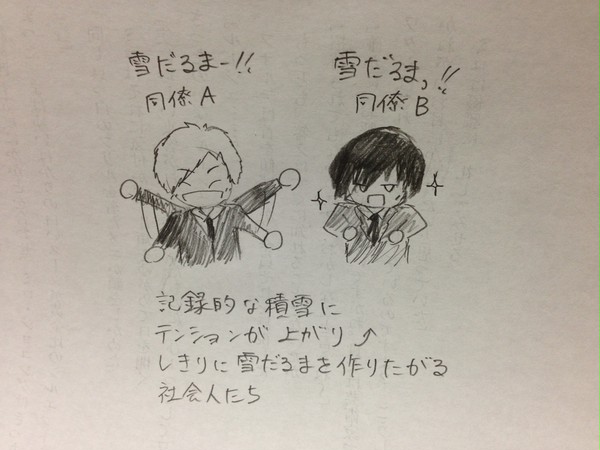 雪だるまー!!
同僚A
雪だるまっ!!
同僚B
記録的な積雪に
テンションが上がり↑
しきりに雪だるまを作りたがる
社会人たち